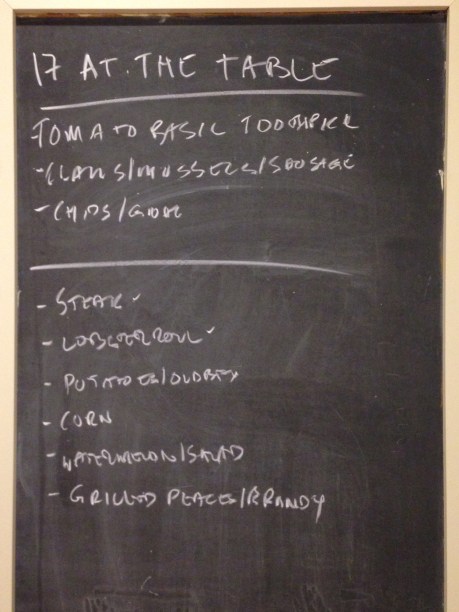 17 AT THE TABLE
-TOMATO BASIL TOOTHPICK
-CLAMS/MUSSELS/SAUSAGE
-CHIPS/GUAC
- STEAK
- LOBSTER ROLL
- POTATOES/OLDBAY
- CORN
- WATERMELON/SALAD
- GRILLED PEACES/BRANDY